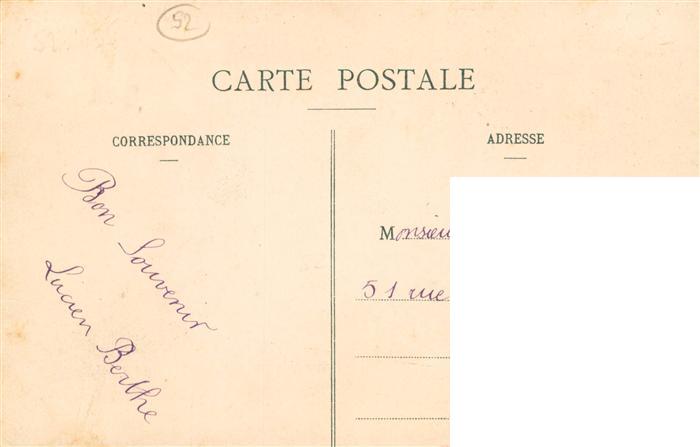 52
CARTE POSTALE
CORRESPONDANCE
ADRESSE
Bon Souvenir
Lucien Berthe
Monsieu
51 rue